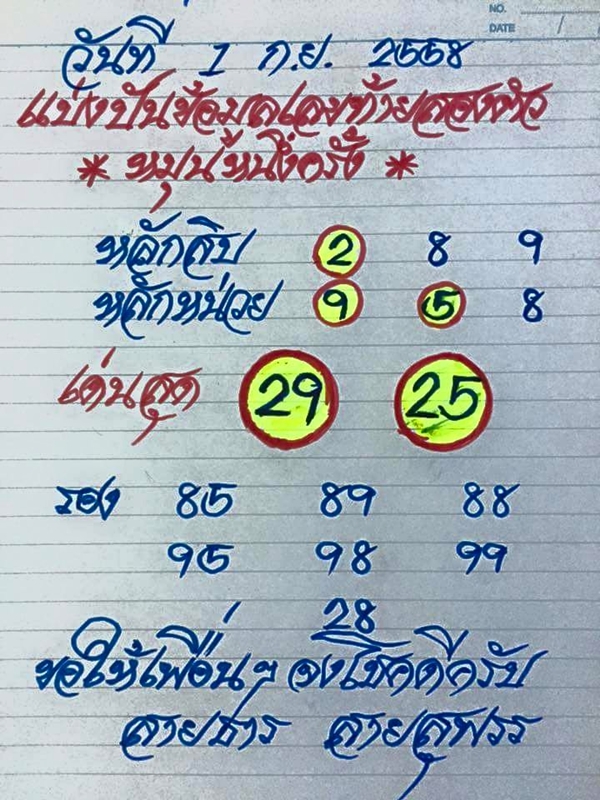 NO.
DATE /
วันที่ 1 ก.ย. 2558
แบ่งปันข้อมูลเลขท้ายสองตัว
* หมุนหนึ่งครั้ง *
หลักสิบ 2 8 9
หลักหน่วย 9 5 8
เด่นสุด 29 25
รอง 85 89 88
95 98 99
28
ขอให้เพื่อนๆ จงโชคดีครับ
สายธาร สายสุพรร